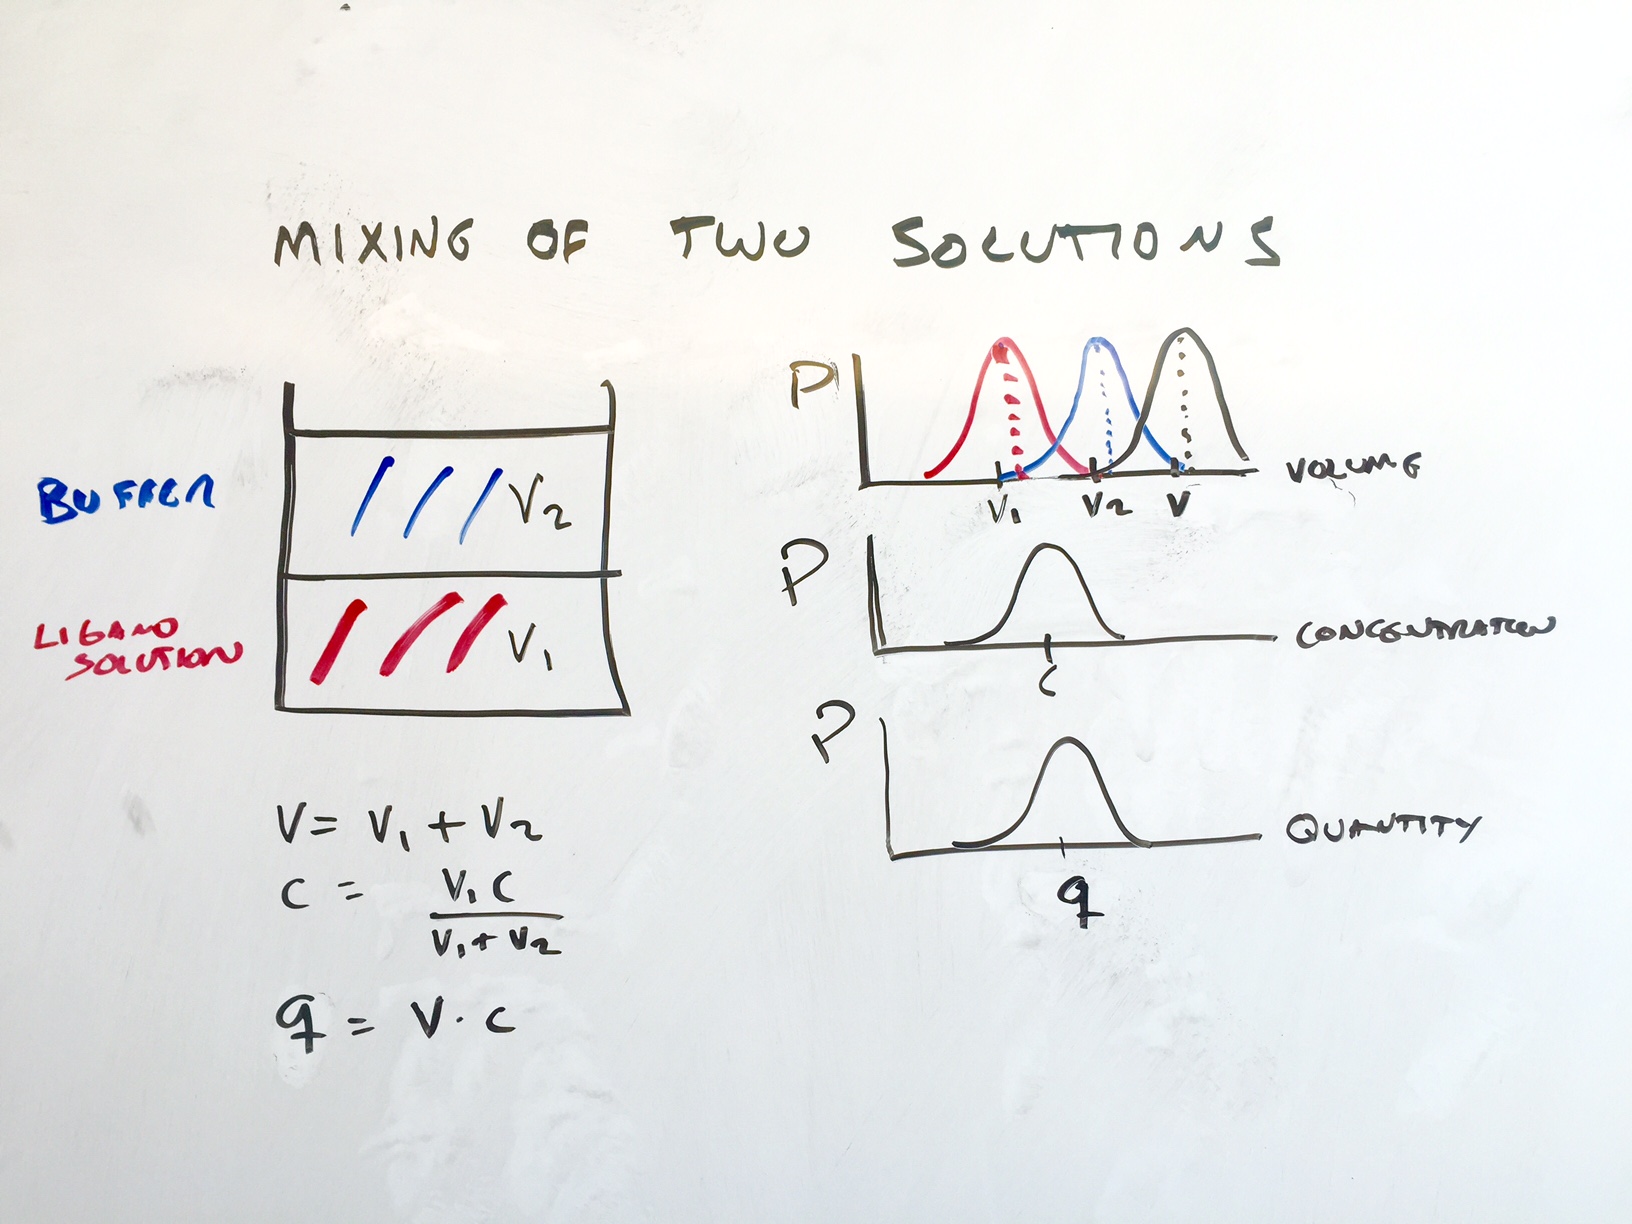 MIXING OF TWO SOLUTIONS
BUFFER
V2
LIGAND
SOLUTION
V1
V = V1 + V2
C = V1 C / V1 + V2
q = V · C
P
VOLUME
V1 V2 V
P
CONCENTRATION
C
P
QUANTITY
q